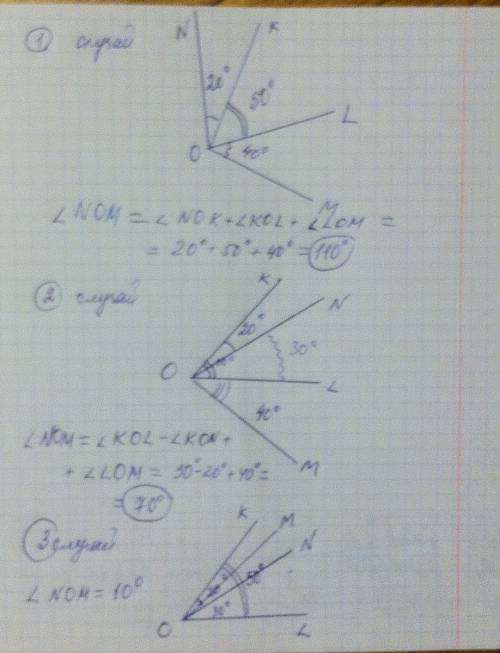 1 случай
N
K
20°
50°
L
O
40°
M
∠NOM = ∠NOK + ∠KOL + ∠LOM =
= 20° + 50° + 40° = 110°
2 случай
K
N
20°
30°
O
L
40°
M
∠NOM = ∠KOL - ∠KON +
+ ∠LOM = 50° - 20° + 40° =
= 70°
3 случай
K
M
N
50°
30°
∠NOM = 10°
O
L